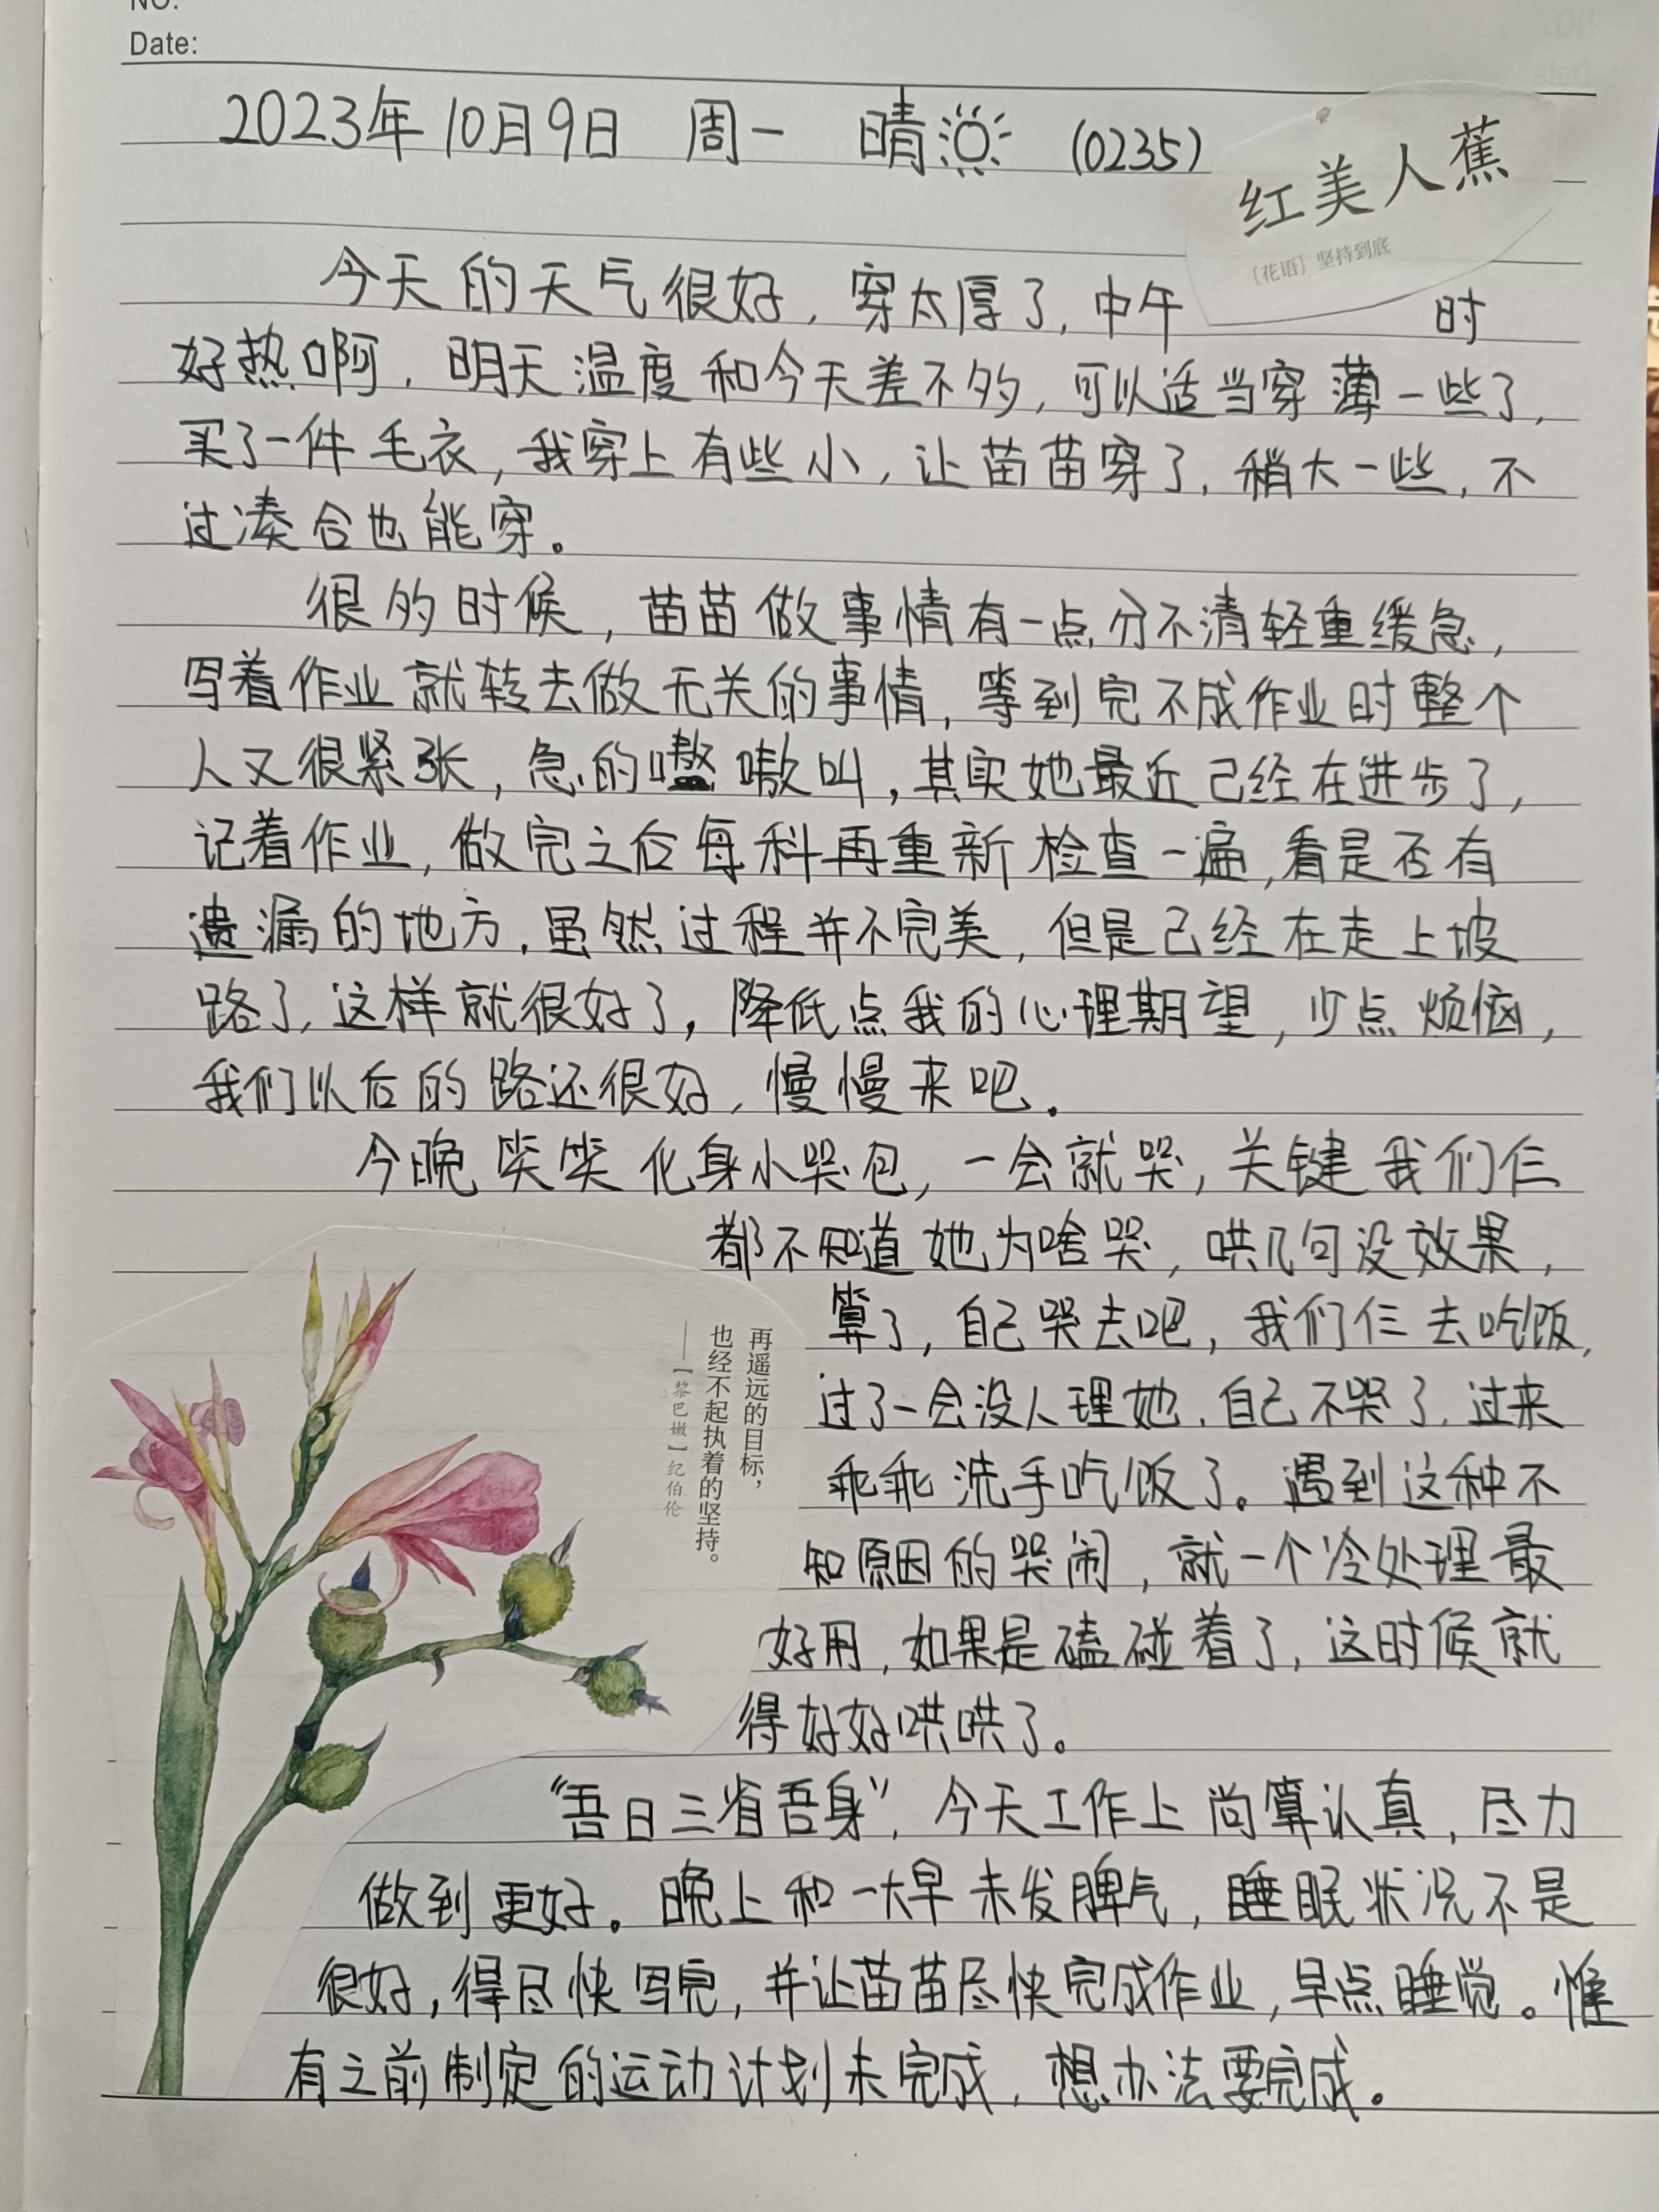 NO:
Date:
2023年10月9日 周一 晴 (0235)
红美人蕉
[花语] 坚持到底
今天的天气很好，穿太厚了，中午 时
好热啊，明天温度和今天差不多，可以适当穿薄一些了，
买了一件毛衣，我穿上有些小，让苗苗穿了，稍大一些，不
过凑合也能穿。
很多时候，苗苗做事情有一点分不清轻重缓急，
写着作业就转去做无关的事情，等到完不成作业时整个
人又很紧张，急的嗷嗷叫，其实她最近已经在进步了，
记着作业，做完之后每科再重新检查一遍，看是否有
遗漏的地方，虽然过程并不完美，但是已经在走上坡
路了，这样就很好了，降低点我的心理期望，少点烦恼，
我们以后的路还很好，慢慢来吧．
今晚笑笑化身小哭包，一会就哭，关键我们仨
都不知道她为啥哭，哄几句没效果，
算了，自己哭去吧，我们仨去吃饭，
过了一会没人理她，自己不哭了，过来
乖乖洗手吃饭了。遇到这种不
知原因的哭闹，就一个冷处理最
好用，如果是磕碰着了，这时候就
得好好哄哄了。
再遥远的目标，
也经不起执着的坚持。
——【黎巴嫩】纪伯伦
“吾日三省吾身”，今天工作上尚算认真，尽力
做到更好。晚上和一大早未发脾气，睡眠状况不是
很好，得尽快写完，并让苗苗尽快完成作业，早点睡觉。惟
有之前制定的运动计划未完成，想办法要完成。